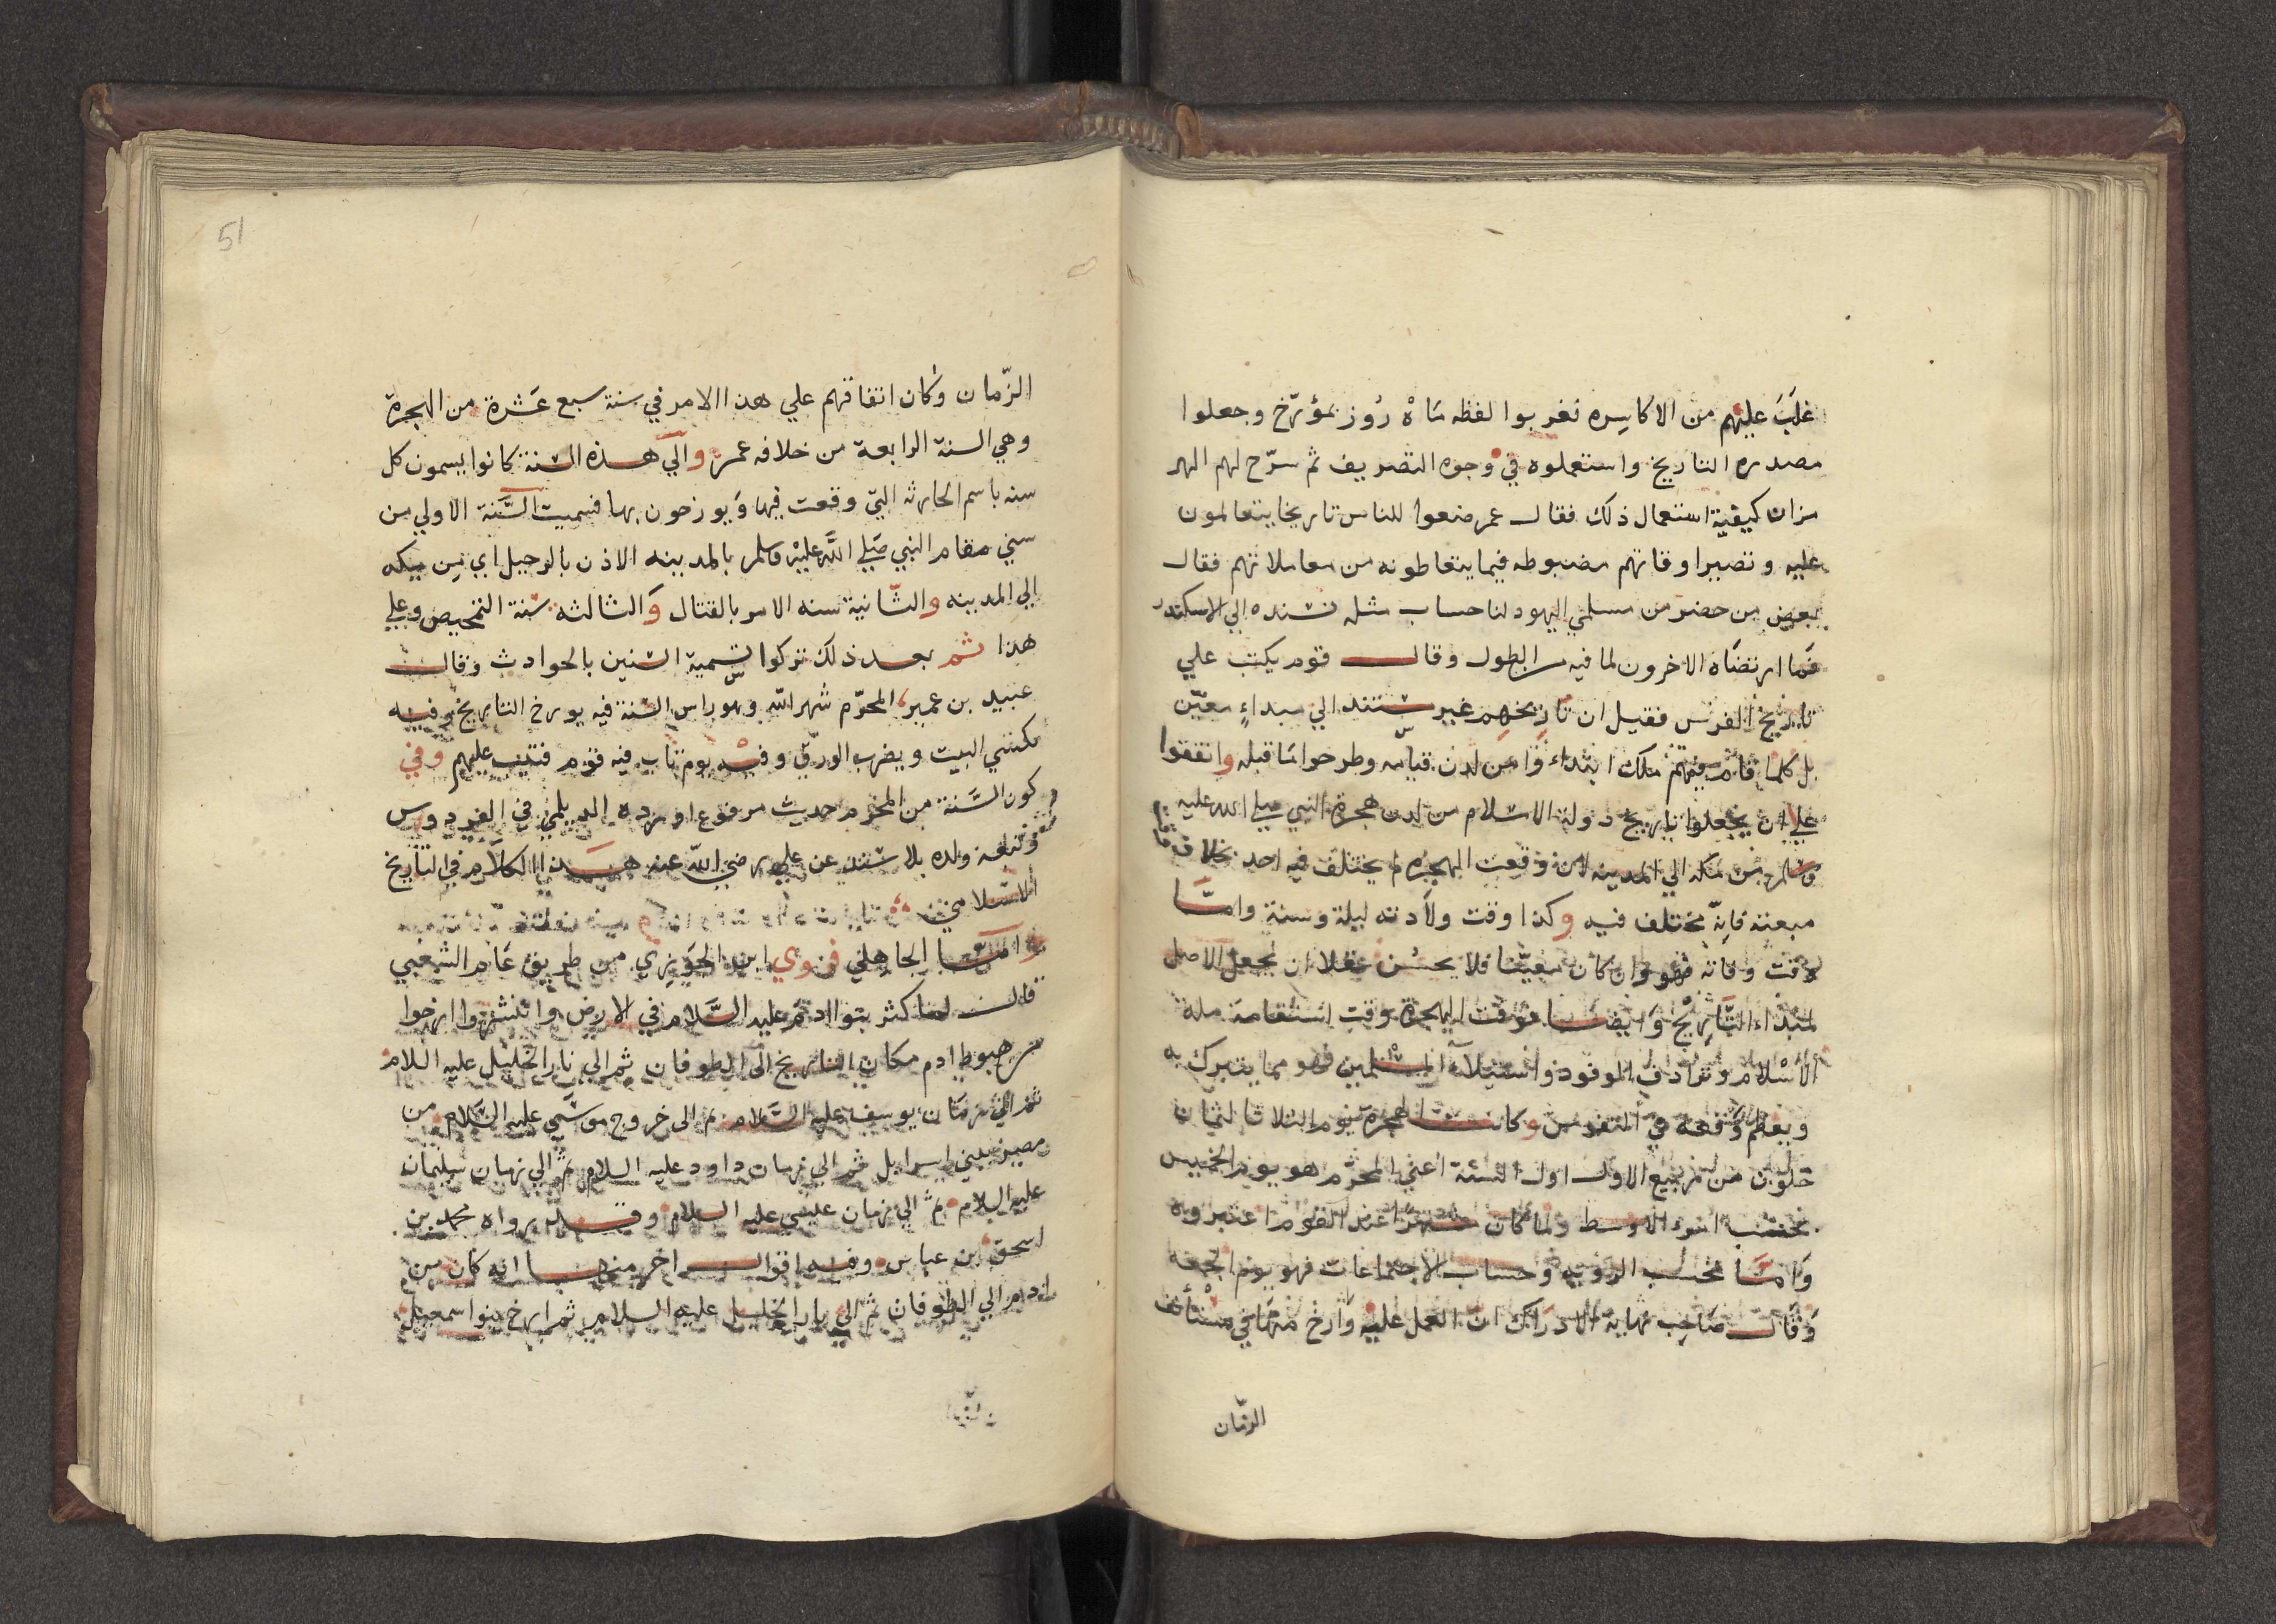 غلَبَ عليهم من الاكاسِره فغربوا لفظه مَاهْ رُوز بمؤرّخ وجعلوا
مصدره التاريخ واستعملوه في وجوه التصريف ثم سرّح لهم الهر
مزان كيفية استعمال ذلك فقال عمر ضعوا للناس تاريخا يتعالمون
عليه وتصير اوقاتهم مضبوطه فيما يتعاطونه من معاملاتهم فقال
بعض من حضر من مسلمي اليهود لنا حساب مثله نسنده الي الاسكندر
فَما ارتضَاه الاخرون لما فيه من الطول وقال قوم يكتب علي
تاريخ الفرس فقيل ان تاريخهم غير مستند الي مبداءٍ معيّن
بل كلما قام فيهم ملك ابتداء وا من لدن قيامه وطرحوا مَا قبله واتفقوا
علي ان يجعلوا تاريخ دولة الاسلام من لدن هجرة النبي صلي الله عليه
وسلم من مكه الي المدينه لان وقت الهجره لم يختلف فيه احد بخلاف
مبعثه فاِنّه مختلف فيه وكذا وقت ولاَدته ليلة وسنة وامَّا
وقت وفاته فهو وان كان معيّنا فلا يحسُن عقلا ان يجعل الاصل
لمبداء التَّارِيْخ وَايضا فوقت الهجرة وقت استقامة ملة
الاسْلام وترادف الوفود واستيلآء المسلمين فهو مما يتبرك به
ويعظم وَقعه في النفوس وكانت الهجرة يوم الثلاثا لثمان
خلون من ربيع الاول اول السَنة اعني المحرّم هو يوم الخميس
بحسب امر الاوسط ولما كان مشهرًا عند القوم اعتبروه
وَامَّا بحسَب الرؤيه وحساب الاجتماعات فهو يوم الجمعه
وَقَال صَاحِب نهاية الادراك ان العمل عليه وَارخ منهَا في مستأنف
الزمّان
51
الزّمان وكان اتفاقهم علي هذا الامر في سنة سبع عَشرة من الهجرة
وهي السنة الرابعة من خلافه عمر والي هذه السنة كانوا يسمون كل
سنه باسم الحادثه التي وقعت فيها وَيورخون بها فسميت السَّنة الاولي من
سني مقام النبي صَلي اللَّه عليْه وسلم بالمدينه الاذن بالرحيل اي مِن مكه
الي المدينه والثّانية سنه الامر بالقتال وَالثالثه سنة التمحيص وعلي
هذا ثم بعد ذلك تركوا تسمية السّنين بالحوادث وقال
عبيد بن عمير، المحرّم شهر اللّه وهو راس السّنة فيه يورخ التاريخ وفيه
تكتسي البيت ويضرب الورق وفيه يوم تاب فيه قوم فتيب عليهم وفي
كون السَّنة من المحرم حديث مرفوع اورده الديلمي في الفردوس
وتبعه ولده بلا سَند عن علي رضي اللّه عنه هَذا الكلاَم في التاريخ
الاسْلامي
وامَّا الجاهلي فروي ابن الجَوزي من طريق عَامر الشعبي
قال لما كثر بنوا ادم عليه السَّلام في الارض وانتشروا ارخوا
من هبوط ادم مكان التاريخ الي الطوفان ثم الي نار الخليل عليه السلام
ثم الي زمَان يوسف عليه السَّلام ثم الي خروج موسَي عليه السَّلام من
مصر ببني اسرايل ثم الي زمان داود عليه السلام ثم الي زمان سليمان
عليه السلام ثم الي زمان عيسي عليه السلام وقد رواه محمد بن
اسحق ابن عباس وفيه اقوال اخر منها انه كان من
ادم الي الطوفان ثم الي نار الخليل عليه السلام ثم ارخ بنوا اسمعيل